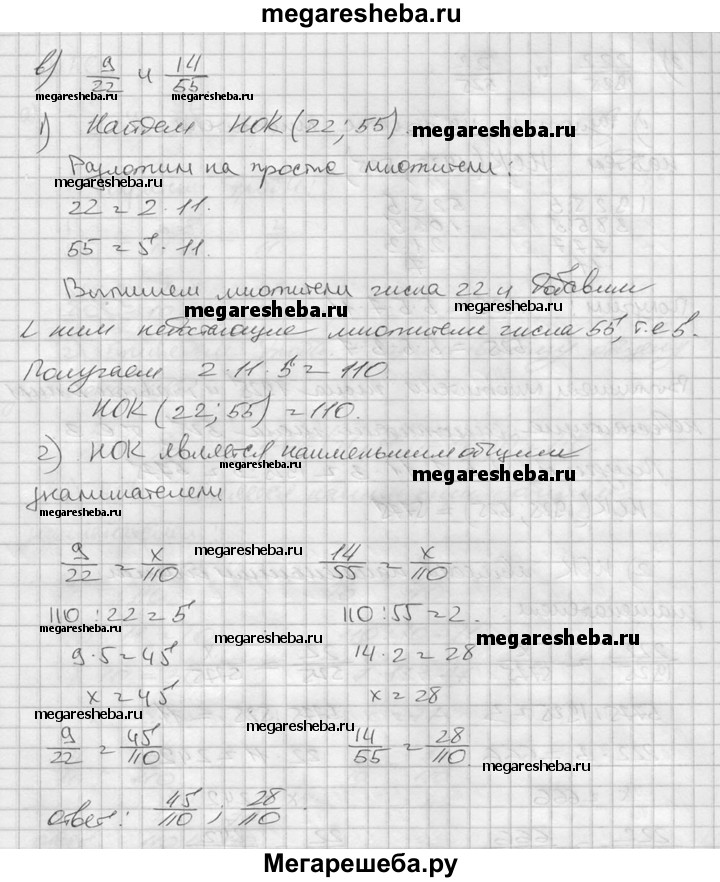 megaresheba.ru
в) 9/22 и 14/55
megaresheba.ru megaresheba.ru
1) Найдем НОК (22; 55) megaresheba.ru
Разложим на просто множители:
megaresheba.ru
22 = 2 · 11.
55 = 5 · 11.
Выпишем множители числа 22 и добавим
megaresheba.ru megaresheba.ru
к ним недостающие множители числа 55, т.е 5.
Получаем 2 · 11 · 5 = 110
НОК (22; 55) = 110.
2) НОК является наименьшим общим
megaresheba.ru megaresheba.ru
знаменателем
megaresheba.ru
9/22 = x/110 megaresheba.ru 14/55 = x/110
110 : 22 = 5 110 : 55 = 2.
megaresheba.ru megaresheba.ru megaresheba.ru
9 · 5 = 45 14 · 2 = 28
x = 45 x = 28
megaresheba.ru megaresheba.ru
9/22 = 45/110 14/55 = 28/110
megaresheba.ru
ответ: 45/110 ; 28/110.
Мегарешеба.ру